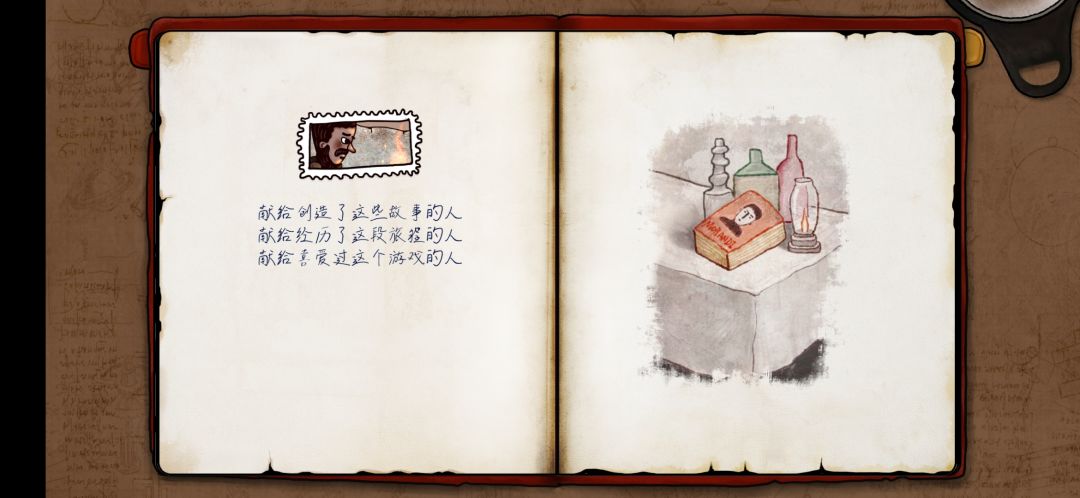 献给创造了这些故事的人
献给经历了这段旅程的人
献给喜爱过这个游戏的人
MORANDI